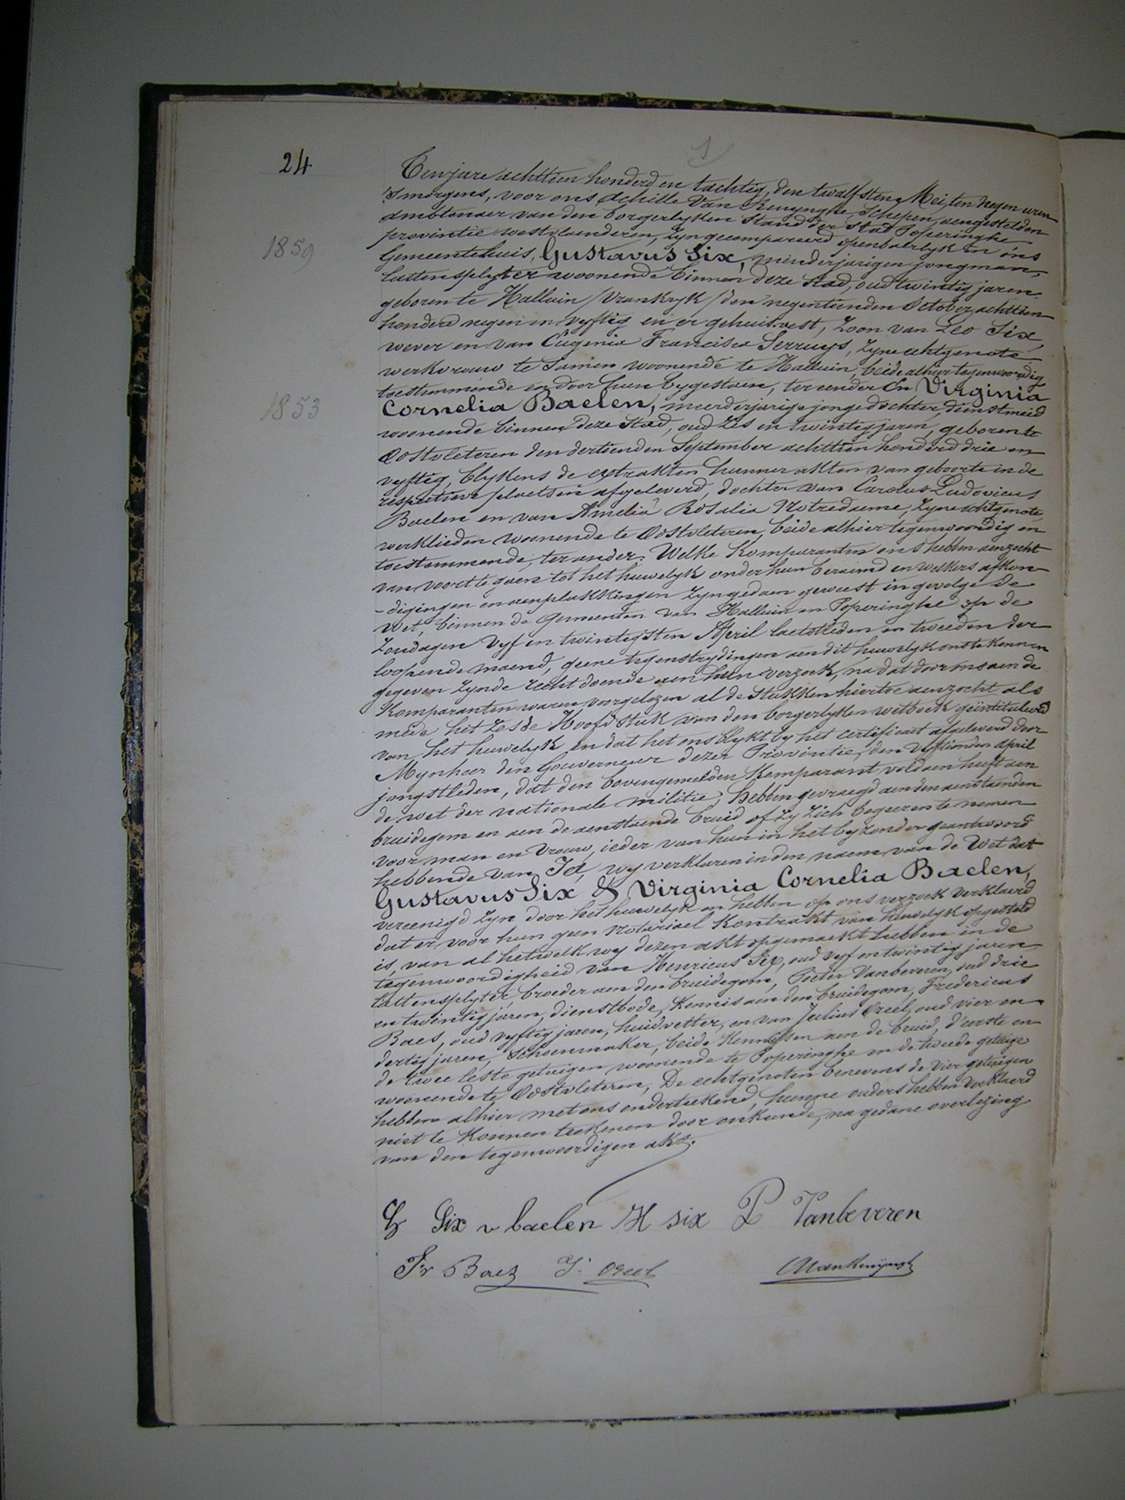 1
24
Ten jare achttien honderd en tachtig, den twalfsten Mei, ten negen uren
'smorgens, voor ons Achille Van Renynghe Schepen, aengestelden
ambtenaer van den borgerlyken Stand der Stad Poperinghe
provintie westvlaenderen, zyn gecompareerd openbaerlyk in ons
1859
Gemeentehuis, Gustavus Six, minderjarigen jongman,
lattensplyter woonende binnen deze Stad, oud twintig jaren
geboren te Halluin /Vrankryk/ den negentienden October achttien
honderd negen en vyftig en er gehuisvest, Zoon van Leo Six,
wever en van Eugenia Francisca Serruys, zyne echtgenote
werkvrouw te Samen woonende te Halluin, beide alhier tegenwoordig
toestemmende en door hun bygestaen, ter eender En Virginia
1853
Cornelia Baelen, meerderjarige jongedochter dienstmeid
woonende binnen deze Stad, oud Zes en twintig jaren, geboren te
Oostvleteren den dertienden September achttien honderd drie en
vyftig, blykens de extrakten hunner akten van geboorte in de
respective plaetsen afgeleverd, dochter van Carolus Ludovicus
Baelen en van Amelia Rosalia Notredaeme, zyne echtgenote
werklieden woonende te Oostvleteren, beide alhier tegenwoordig en
toestemmende, ter ander. Welke Komparanten ons hebben aenzocht
van voort te gaen tot het huwelyk onder hun beraemd en welkers afkon-
-digingen en aenplakkingen zyn gedaen geweest in gevolge de
Wet, binnen de Gemeenten van Halluin en Poperinghe op de
Zondagen vyf en twintigsten April laetstleden en tweeden der
loopende maend, geene tegenstrydingen aen dit huwelyk ons te kennen
gegeven zynde recht doende aen hun verzoek, na dat door ons aen de
Komparanten waren voorgelezen al de Stukken hiertoe aenzocht als
mede het Zesde Hoofdstuk van den borgerlyken wetboek geintituleerd
van het huwelyk en dat het ons blykt by het certificaet afgeleverd door
Mynheer den Gouverneur dezer Provintie, den vyftienden April
jongstleden, dat den bovengemelden Komparant voldaen heeft aen
de wet der nationale militie, hebben gevraegd aen den aenstaenden
bruidegom en aen de aenstaende bruid of zy zich begeeren te nemen
voor man en vrouw, ieder van hun in het byzonder geantwoord
hebbende van Ja, wy verklaren in den naem van de Wet dat
Gustavus Six & Virginia Cornelia Baelen,
vereenigd zyn door het huwelyk en hebben op ons verzoek verklaerd
dat er voor hun geen notariael Kontrakt van huwelyk opgesteld
is, van al hetwelk wy dezen akt opgemaekt hebben in de
tegenwoordigheid van Henricus Six, oud vyf en twintig jaren
lattensplyter, broeder aen den bruidegom, Pieter Vanbeveren, oud drie
en twintig jaren, dienstbode, Kennis aen den bruidegom, Fredericus
Baes, oud vyftig jaren, huidvetter, en van Julius Oreel, oud vier en
dertig jaren, Schoenmaker, beide Kennissen aen de bruid, d'eerste en
de twee leste getuigen woonende te Poperinghe en de tweede getuige
woonende te Oostvleteren, De echtgenoten benevens de vier getuigen
hebben alhier met ons onderteekend, hunne ouders hebben verklaerd
niet te Konnen teekenen door onkunde, na gedane overlezing
van den tegenwoordigen akt.
G Six v baelen H six P Vanbeveren
Fr Baes J. Oreel